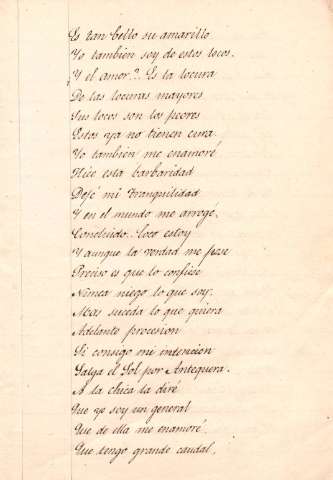 Es tan bello su amarillo
Yo también soy de estos locos.
Y el amor?.. Es la locura
De las locuras mayores
Sus locos son los peores
Estos ya no tienen cura
Yo también me enamoré
Hice esta barbaridad
Dejé mi tranquilidad
Y en el mundo me arrogé.
Concluido.. loco estoy
Y aunque la verdad me pese
Preciso es que lo confiese
Nunca niego lo que soy.
Mas suceda lo que quiera
Adelante procesion
Si consigo mi intencion
Salga el Sol por Antequera.
A la chica la diré
Que yo soy un general
Que de ella me enamoré,
Que tengo grande caudal,